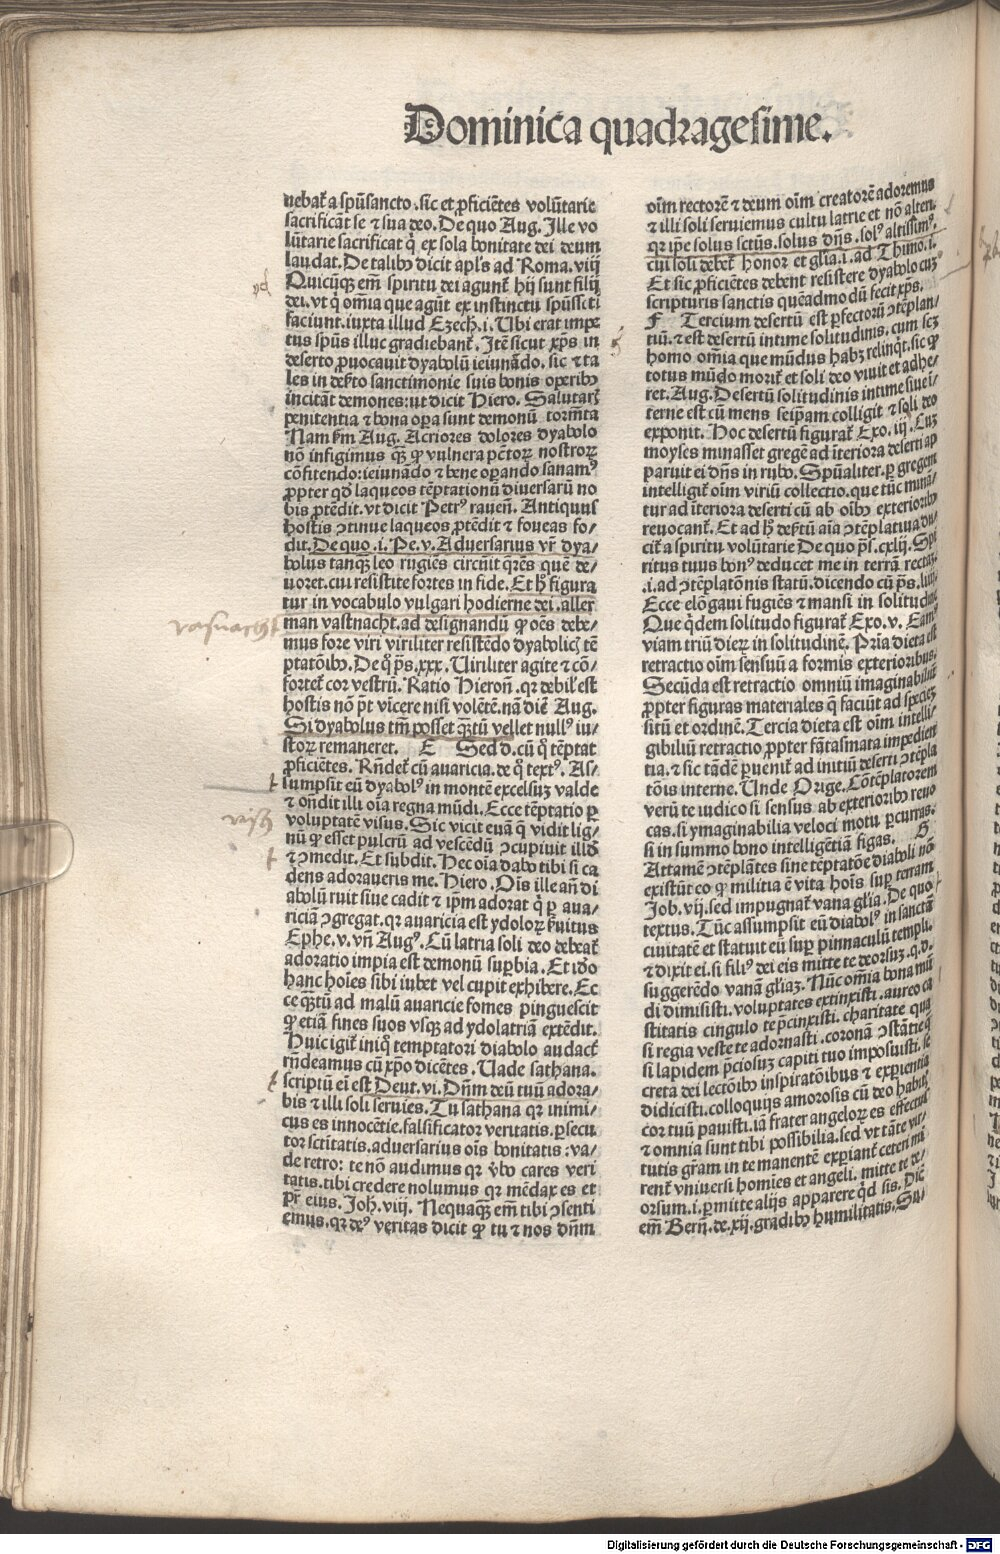 Dominica quadragesime.
uebat᷑ a spūsancto. sic et ꝓficiētes volūtarie
sacrificāt se ⁊ sua deo. De quo Aug. Ille vo
lūtarie sacrificat q̇ ex sola bonitate dei deum
laudat. De talibꝰ dicit apl's ad Roma. viij
Quicūqꝫ em̄ spiritu dei agunt᷑ hij sunt filij
dei. vt q̇ om̄ia que agūt ex instinctu spūsscti
faciunt. iuxta illud Ezech. i. Ubi erat impe
tus spūs illuc gradiebant᷑. Itē sicut xp̄s in
deserto ꝓuocauit dyabolū ieiunādo. sic ⁊ ta
les in de᷑to sanctimonie suis bonis operibꝰ
incitāt demones: ut dicit Hiero. Salutaris
penitentia ⁊ bona oꝑa sunt demonū torm̄ta
Nam ẜm Aug. Acriores dolores dyabolo
nō infigimus qꝫ̄ ꝙ vulnera pctōꝝ nostroꝝ
cōfitendo: ieiunādo ⁊ bene oꝑando sanamꝰ
ꝓpter qd̄ laqueos tēptationū diuersarū no
bis ꝓtēdit. vt dicit Petrꝰ rauen̄. Antiquus
hostis ↄtinue laqueos ꝓtēdit ⁊ foueas fo⸗
dit. De quo .i. Pe. v. Aduersarius vr̄ dya⸗
bolus tanqꝫ leo rugiēs circuit q̄rēs quē de⸗
uoret. cui resistite fortes in fide. Et h̄ figura
tur in vocabulo vulgari hodierne dei. aller
man vastnacht. ad designandū ꝙ oēs debe⸗
mus fore viri viriliter resistēdo dyabolicꝭ tē
ptatōibꝰ. De q̊ p̄s. xxx. Uiriliter agite ⁊ cō⸗
fortet᷑ cor vestrū. Ratio Hieron̄. qꝛ debil' est
hostis nō pt̄ vicere nisi volētē. nā diē Aug.
Si dyabolus tm̄ posset qꝫtū vellet nullꝰ iu⸗
stoꝝ remaneret. E Sed d. cū q̊ tēptat
ꝓficiētes. Rn̄det᷑ cū auaricia. de q̊ textꝰ. As⸗
sumpsit eū dyabolꝰ in montē excelsuꝫ valde
⁊ on̄dit illi oīa regna mūdi. Ecce tēptatio ꝑ
voluptatē visus. Sic vicit euā q̄ vidit lig⸗
nū ꝙ esset pulcrū ad vescēdū ↄcupiuit illd̄
⁊ ↄmedit. Et subdit. Hec oīa dabo tibi si ca
dens adoraueris me. Hiero. Oīs ille an̄ di
abolū ruit siue cadit ⁊ ip̄m adorat q̇ ꝑ aua⸗
riciā ↄgregat. qꝛ auaricia est ydoloꝝ ẜuitus
Ephe. v. vn̄ Augꝰ. Cū latria soli deo debeat᷑
adoratio impia est demonū suꝑbia. Et iō
hanc hoīes sibi iubet vel cupit exhibere. Ec
ce qꝫtū ad malū auaricie fomes pinguescit
ꝙ etiā fines suos vsqꝫ ad ydolatriā extēdit.
Huic igit᷑ iniq̊ temptatori diabolo audact᷑
rn̄deamus cū xp̄o dicētes. Uade sathana.
scriptū ei est Deut. vi. Dn̄m deū tuū adora⸗
bis ⁊ illi soli seruies. Tu sathana qꝛ inimi⸗
cus es innocētie. falsificator veritatis. ꝑsecu
tor sctītatis. aduersarius oīs bonitatis: va⸗
de retro: te nō audimus qꝛ v̓bo cares veri
tatis. tibi credere nolumus qꝛ mēdax es et
pr̄ eius. Joh. viij. Nequaqꝫ em̄ tibi ↄsenti
emus. qꝛ deꝰ veritas dicit ꝙ tu ⁊ nos dn̄m
oīm rectorē ⁊ deum oīm creatorē adoremus
⁊ illi soli seruiemus cultu latrie et nō alteri.
qꝛ ip̄e solus sctūs. solus dn̄s. solꝰ altissimꝰ.
cui soli debet᷑ honor et gl̄ia. i. ad Thimo. i.
Et sic ꝓficiētes debent resistere dyabolo cuꝫ
scripturis sanctis quēadmodū fecit xp̄s.
F Tercium desertū est ꝑfectoꝝ ↄtēplan⸗
tiū. ⁊ est desertū intime solitudinis. cum scꝫ
homo om̄ia que mūdus habꝫ relinqt̄. sic ꝙ
totus mūdo morit᷑ et soli deo viuit et adhe⸗
ret. Aug. Desertū solitudinis intime siue ī⸗
terne est cū mens seip̄am colligit ⁊ soli deo
exponit. Hoc desertū figurat᷑ Exo. iij. Cuꝫ
moyses minasset gregē ad īteriora deserti ap
paruit ei dn̄s in rubo. Spūaliter. ꝑ gregem
intelligit᷑ oīm viriū collectio. que tūc mina⸗
tur ad īteriora deserti cū ab oībꝰ exterioribꝰ
reuocant᷑. Et ad h̄ de᷑tū aīa ↄtēplatiua du⸗
cit᷑ a spiritu volūtarie De quo p̄s. cxlij. Spi
ritus tuus bonꝰ deducet me in terrā rectaꝫ.
.i. ad ↄtēplatōnis statū. dicendo cū p̄s. liiij
Ecce elōgaui fugiēs ⁊ mansi in solitudīe
Que q̇dem solitudo figurat᷑ Exo. v. Eam⸗
viam triū dieꝝ in solitudinē. Prīa dieta est
retractio oīm sensuū a formis exterioribus.
Secūda est retractio omniū imaginabiliū
ꝓpter figuras materiales q̄ faciūt ad speciēꝫ
sitū et ordinē. Tercia dieta est oīm intelli⸗
gibiliū retractio ꝓpter fātasmata impedien
tia. ⁊ sic tādē ꝑuenit᷑ ad initiū deserti ↄtēpla
tōis interne. Unde Orige. Cōtēplatorem
verū te iudico si sensus ab exterioribꝰ reuo
cas. si ymaginabilia veloci motu ꝑcurras.
si in summo bono intelligētiā figas. G
Attamē ↄtēplātes sine tēptatōe diaboli nō
existūt eo ꝙ militia ē vita hoīs suꝑ terram
Job. vij. sed impugnat᷑ vana gl̄ia. De quo
textus. Tūc assumpsit eū diabolꝰ in sanctā
ciuitatē et statuit eū suꝑ pinnaculū templi.
⁊ dixit ei. si filiꝰ dei eis mitte te deorsuꝫ. q. d.
suggerēdo vanā gl̄iaꝫ. Nūc om̄ia bona mū
di dimisisti. voluptates extinxisti. aureo ca
stitatis cingulo te p̄cinxisti. charitate qua
si regia veste te adornasti. coronā ↄstātie q̄
si lapidem p̄ciosuꝫ capiti tuo imposuisti. se
creta dei lectōibꝰ inspiratōibus ⁊ exꝑientia
didicisti. colloquijs amorosis cū deo habitꝭ
cor tuū pauisti. iā frater angeloꝝ es effectus
⁊ omnia sunt tibi possibilia. sed vt tāte vir⸗
tutis gr̄am in te manentē expiant᷑ ceteri mi
rent᷑ vniuersi homīes et angeli. mitte te de⸗
orsum. i. ꝑmitte alijs apparere qd̄ sis. Dic̄
em̄ Bern̄. de. xij. gradibꝰ humilitatis. Su⸗
vasnacht
Digitalisierung gefördert durch die Deutsche Forschungsgemeinschaft - DFG